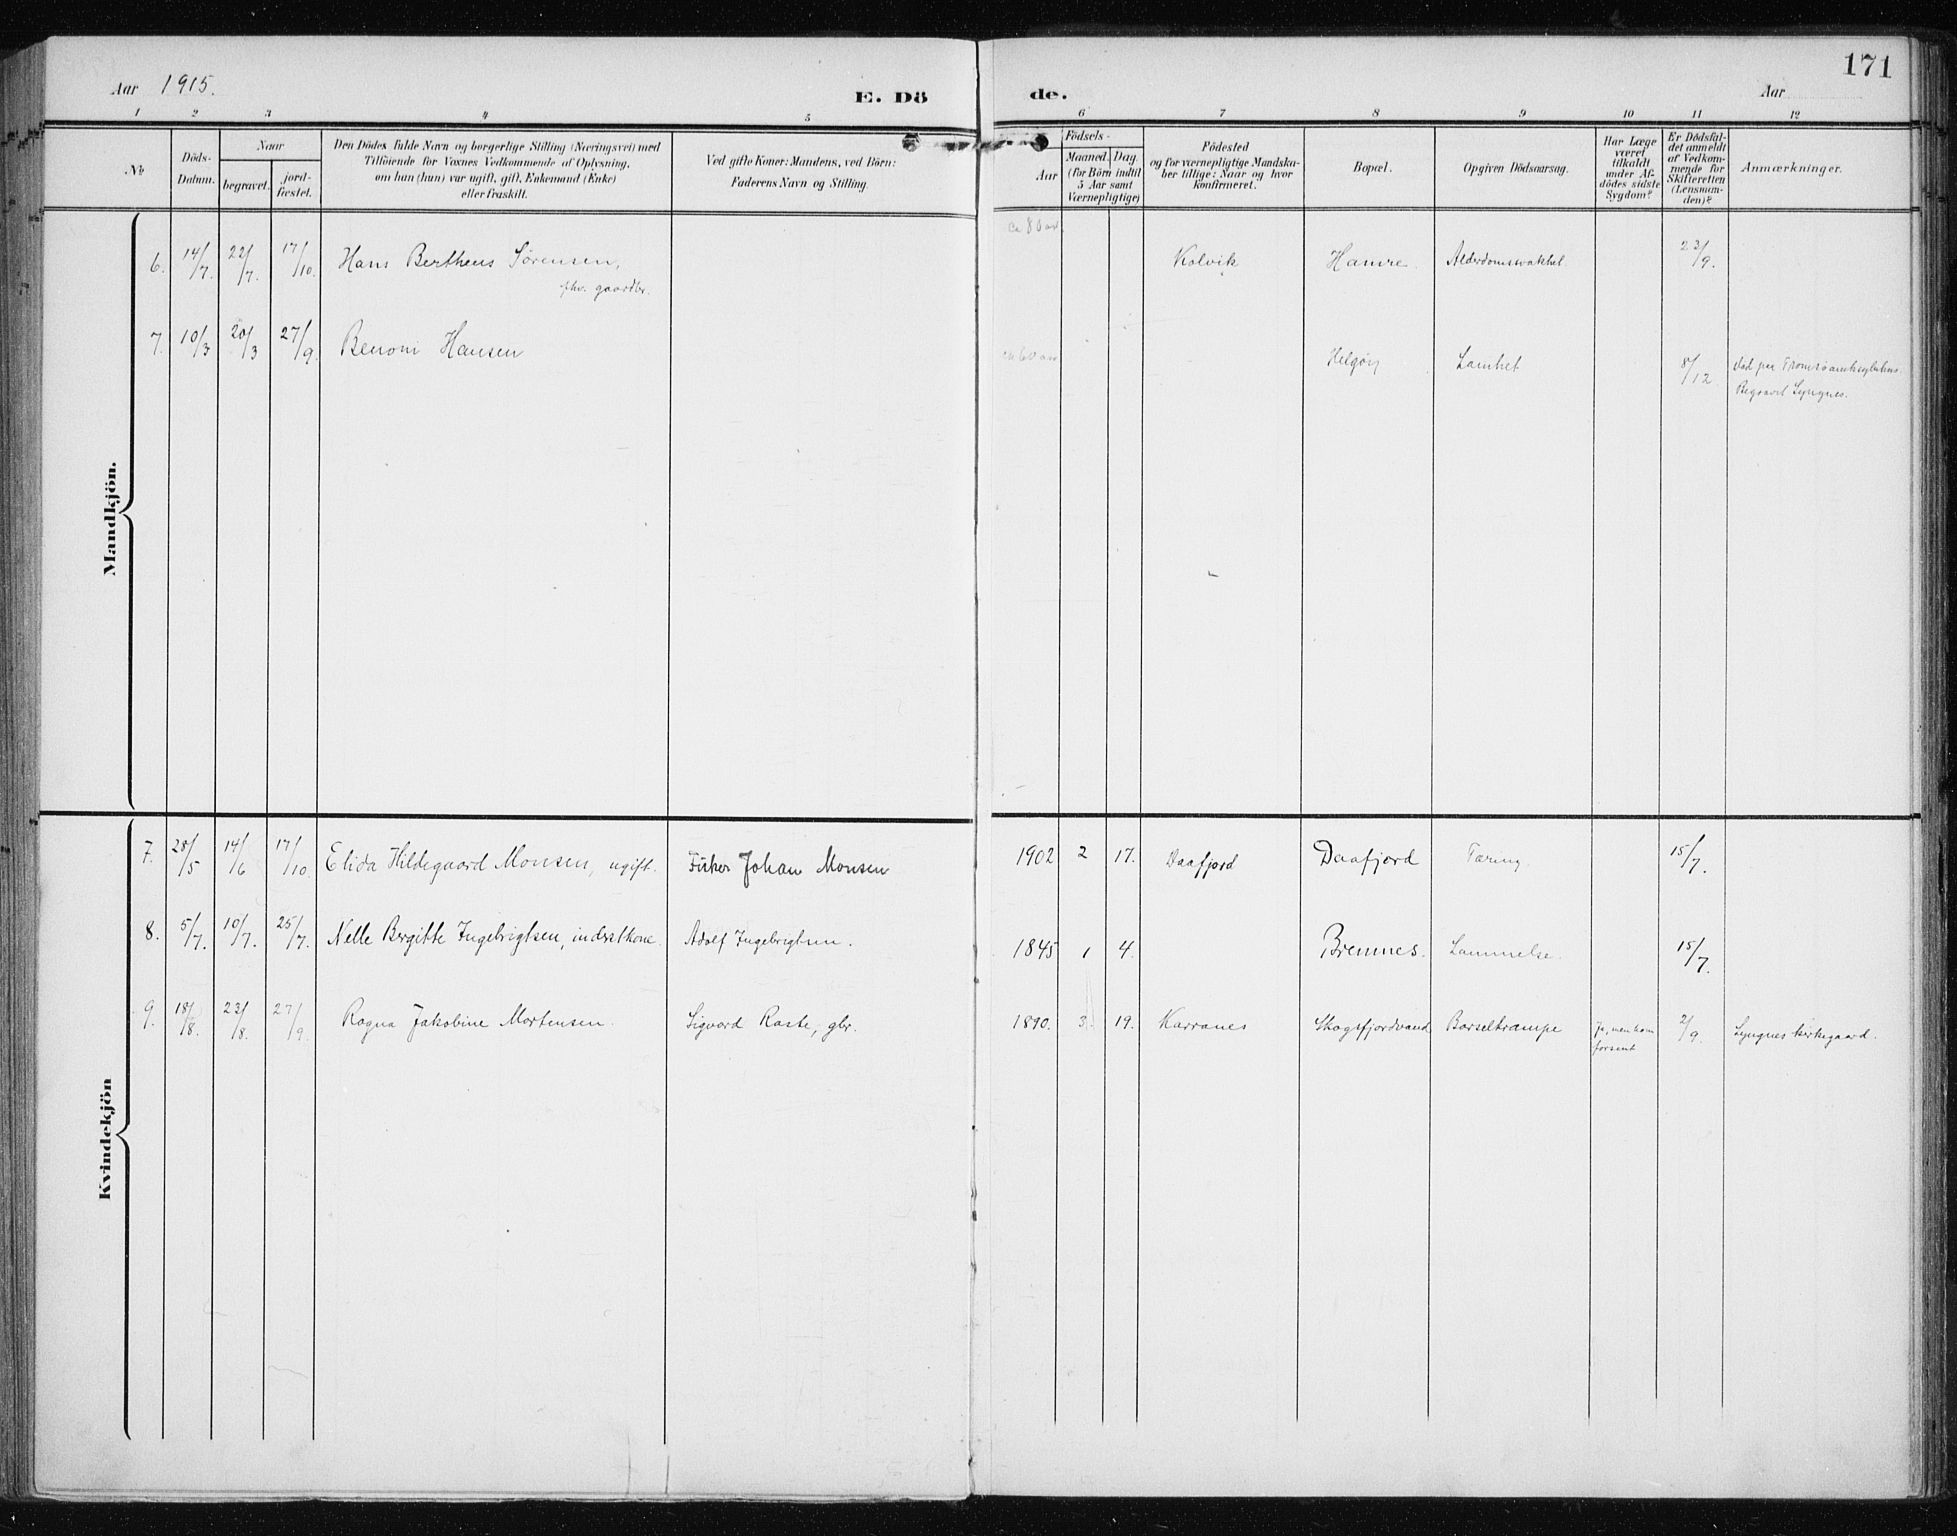 Aar 1915.
E. Dö
de.
171
Aar
1 2 3 4 5 6 7 8 9 10 11 12
No
Döds-
Datum.
Naar
begravet.
jord-
fæstet.
Den Dödes fulde Navn og borgerlige Stilling (Næringsvei) med
Tilföiende for Voxnes Vedkommende af Oplysning,
om han (hun) var ugift, gift, Enkemand (Enke)
eller fraskilt.
Ved gifte Koner: Mandens, ved Börn:
Faderens Navn og Stilling.
Födsels-
Aar
Maaned.
Dag.
(for Börn indtil
5 Aar samt
Værnepligtige)
Födested
og for værnepligtige Mandska-
ber tillige: Naar og hvor
konfirmeret.
Bopæl.
Opgiven Dödsaarsag.
Har Læge
været
tilkaldt
under Af-
dödes sidste
Sygdom?
Er Dödsfal-
det anmeldt
af Vedkom-
mende for
Skifteretten
(Lensman-
den)?
Anmærkninger.
Mandkjön.
ca 80 aar.
6. 14/7. 22/7. 17/10. Hans Bertheus Sørensen, Kolvik Hamre. Alderdomssvakhet. 23/9.
fhv. gaardbr.
7. 10/3 20/3 27/9. Benoni Hansen ca 60 aar Helgøy Lamhet 8/12. Død paa
Begravet Lyngnes.
Kvindekjön
7. 28/5 14/6 17/10. Elida Hildegaard Monsen, ugift. Fisker Johan Monsen 1902 2 17. Daafjord Daafjord Tæring 15/7.
8. 5/7. 10/7. 25/7. Nelle Bergitte Ingebrigtsen, indrstkone. Adolf Ingebrigtsen. 1845 1 4. Bremnes. Lammelse. 15/7.
9. 18/8. 23/8. 27/9. Ragna Jakobine Mortensen. Sigvard Raste, gbr. 1890. 3. 19. Karranes Skogsfjordvand Barselkrampe Ja, men kom 2/9. Lyngnes kirkegaard.
forsent